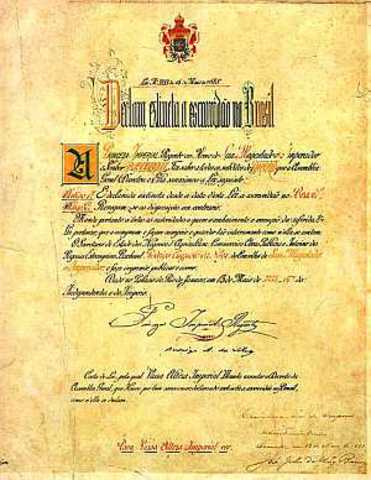 Lei Nº 3353 de 13 de Maio de 1888.
Declara extincta a escravidão no Brasil
A Princeza Imperial Regente em Nome de Sua Magestade o Imperador
o Senhor D. Pedro II, Faz saber a todos os subditos do Imperio que a Assembléa
Geral Decretou e Ella sanccionou a Lei seguinte:
Artigo 1º É declarada extincta desde a data d'esta Lei a escravidão no Brasil.
Artigo 2º Revogam-se as disposições em contrario.
Manda portanto a todas as autoridades a quem o conhecimento e execução da referida Lei
pertencer, que a cumpram e façam cumprir e guardar tão inteiramente como n'ella se contem.
O Secretario de Estado dos Negocios d'Agricultura, Commercio e Obras Publicas e Interino dos
Negocios Estrangeiros, Bacharel Rodrigo Augusto da Silva, do Conselho de Sua Magestade
o Imperador, o faça imprimir, publicar e correr.
Dada no Palacio do Rio de Janeiro, em 13 de Maio de 1888, 67º da
Independencia e do Imperio.
Princeza Imperial Regente
Rodrigo A. da Silva
Carta de Lei, pela qual Vossa Alteza Imperial Manda executar o Decreto da
Assembléa Geral, que Houve por bem sanccionar, declarando extincta a escravidão no Brasil,
como n'ella se declara.
Para Vossa Alteza Imperial ver.